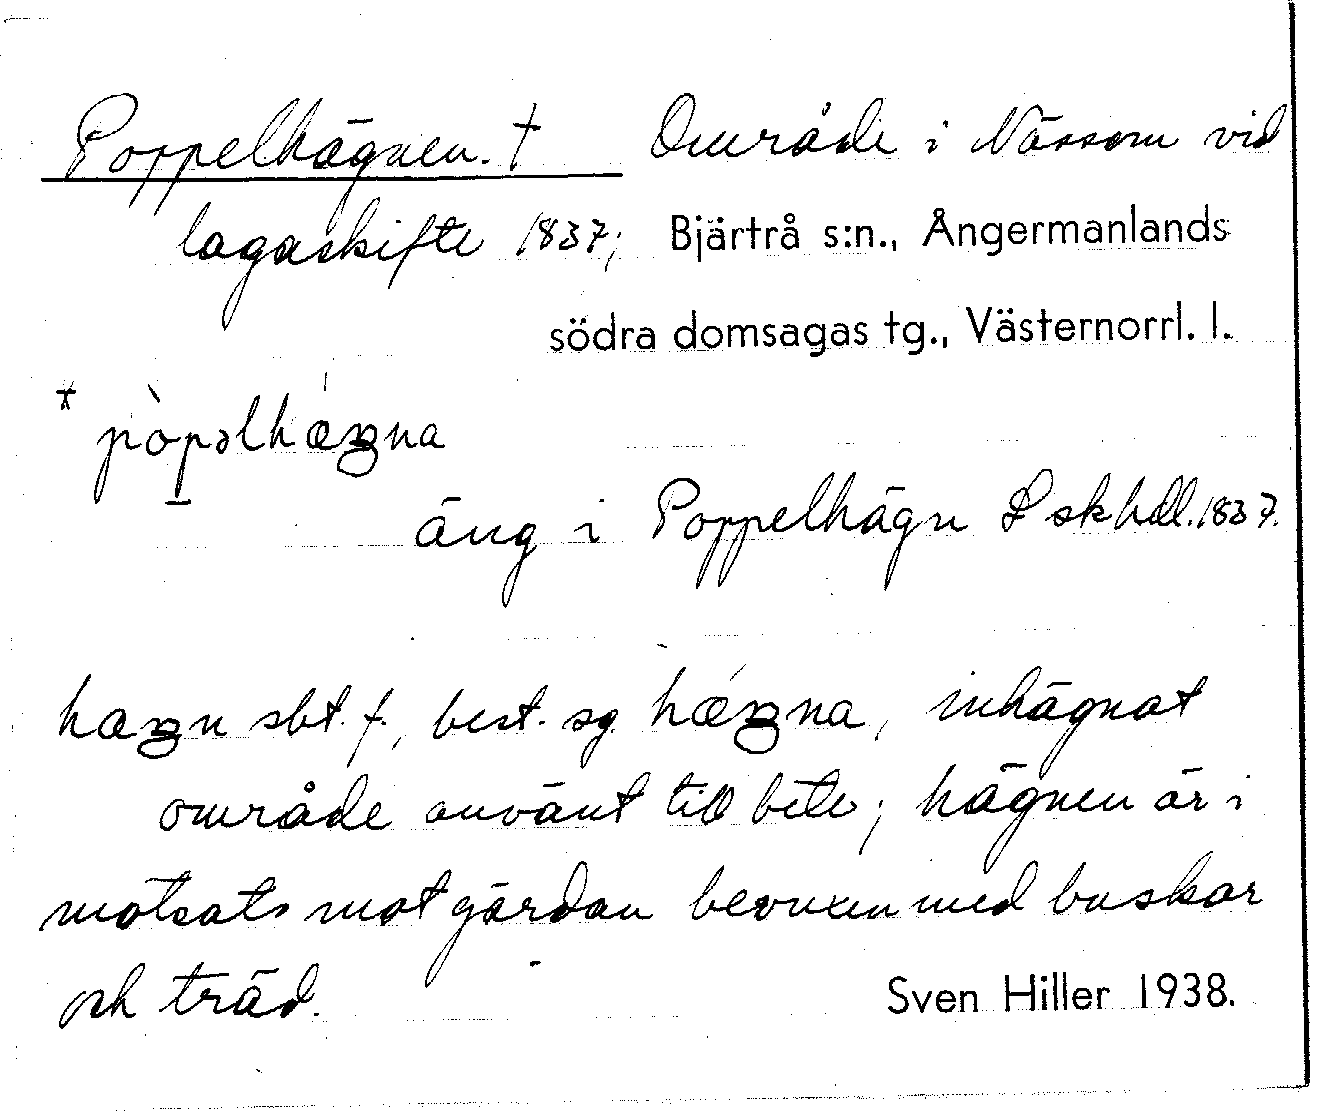 Poppelhägnen. † Område i Nässom vid
lagaskifte 1837; Bjärtrå s:n., Ångermanlands
södra domsagas tg., Västernorrl. l.
* pòpəlhǽʒna
äng i Poppelhägn L skhdl. 1837.
hæʒn sbt. f., best. sg. hǽʒna, inhägnat
område använt till bete; hägnen är i
motsats mot gärdan bevuxen med buskar
och träd. Sven Hiller 1938.